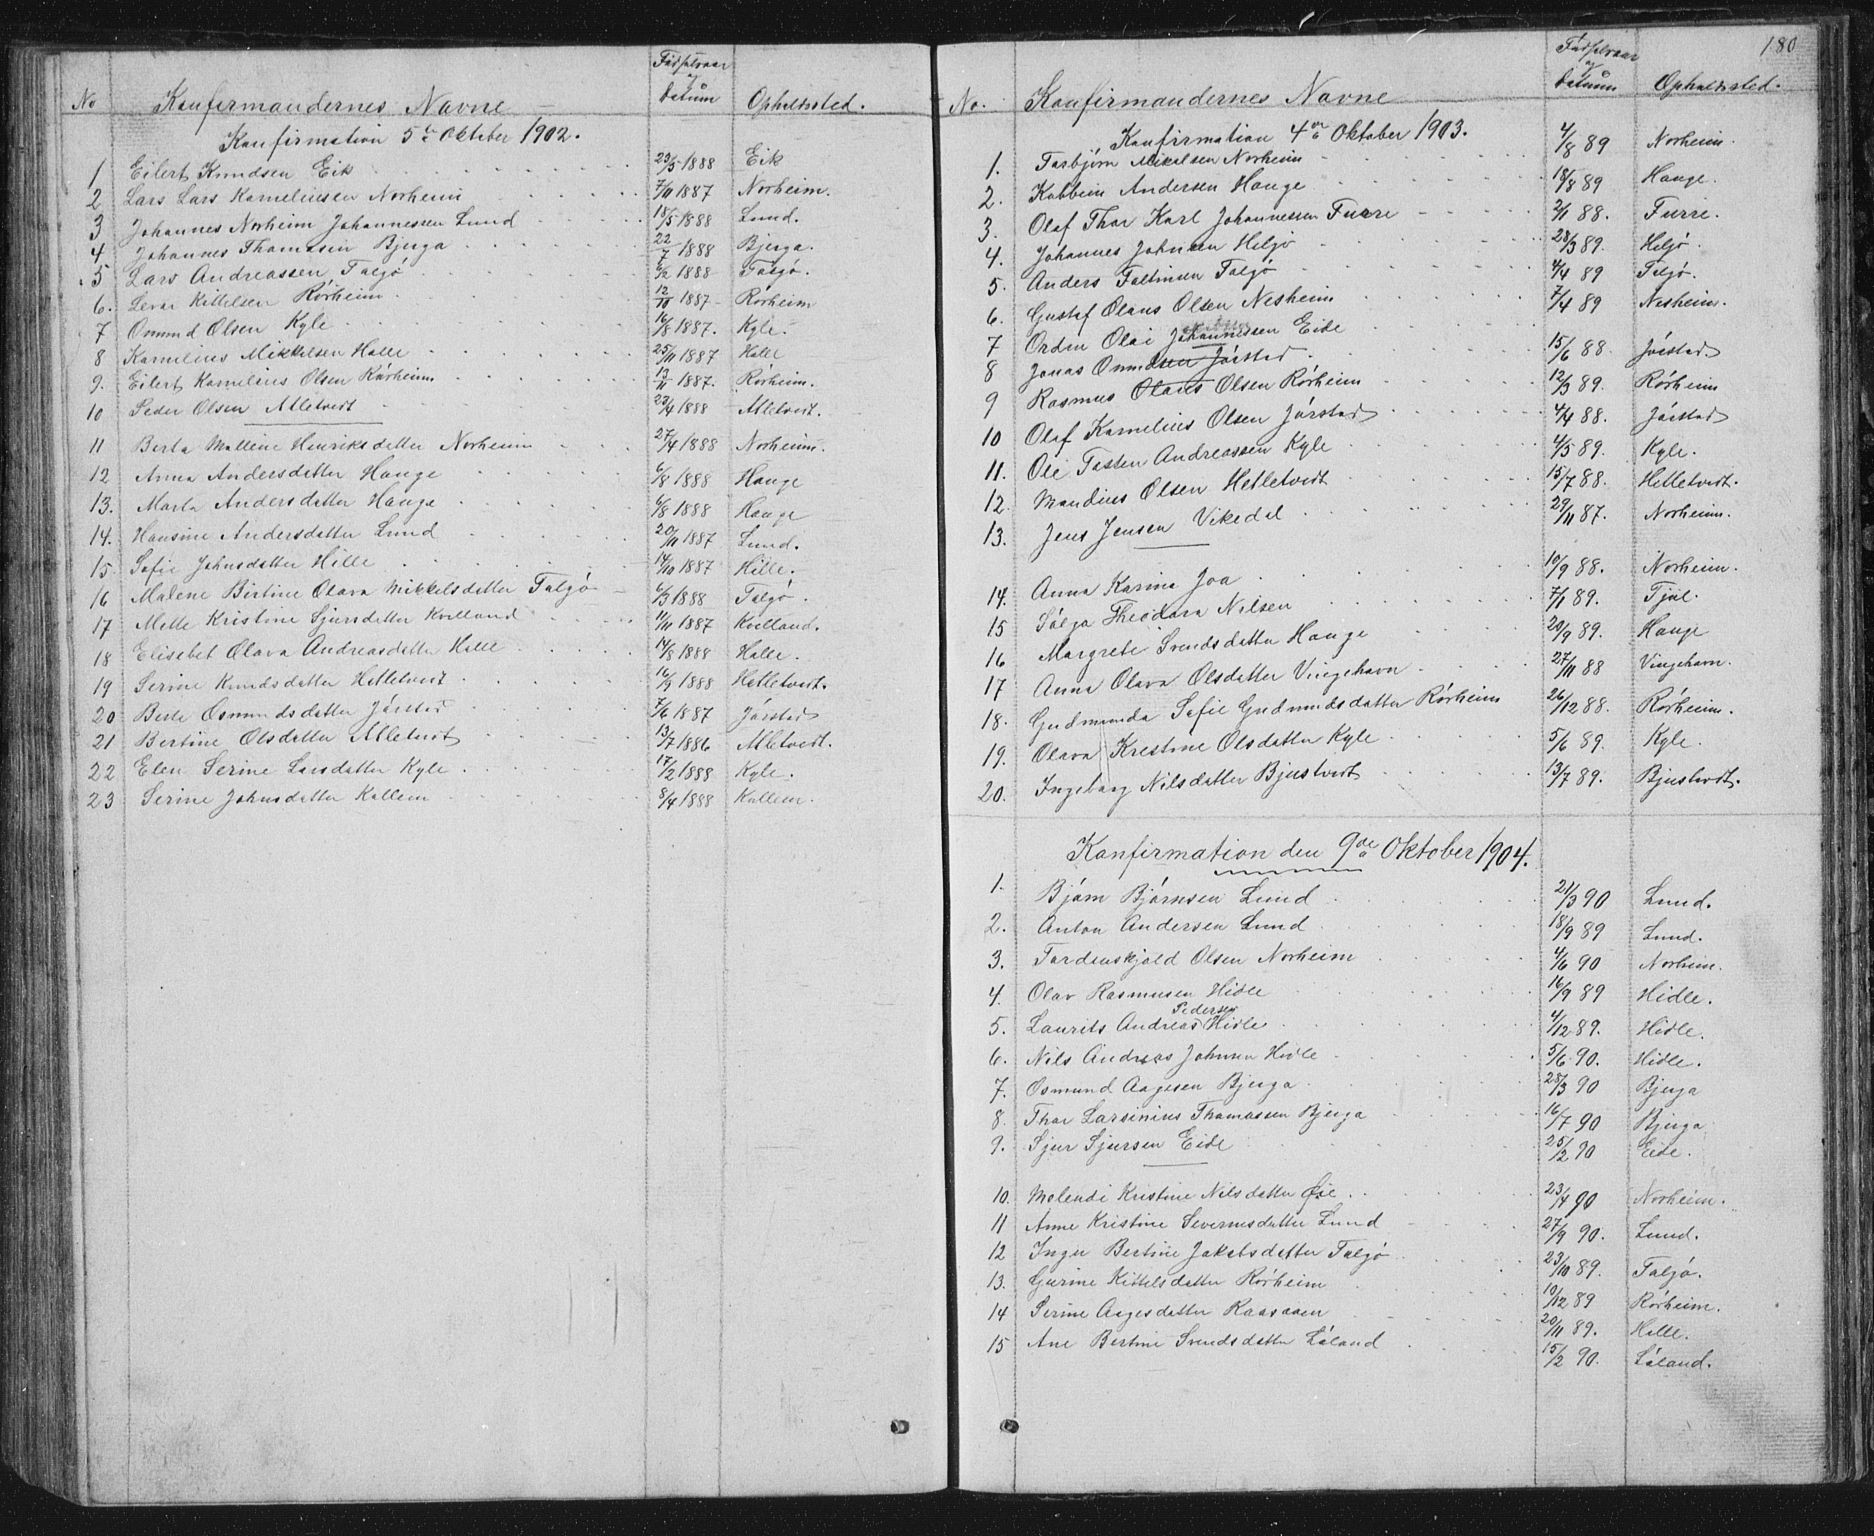 No Konfirmandernes Navne Fødselsaar og Datum Opholdssted.
Konfirmation 5te Oktober 1902.
1 Eilert Knudsen Eik 23/5 1888 Eik
2 Lars Lars Kornelinsen Norheim 7/11 1887 Norheim.
3 Johannes Norheim Johannessen Lund 18/5 1888 Lund.
4 Johannes Thomassen Bjerga 22/7 1888 Bjerga.
5 Lars Andreassen Talgø 1888 Talgø.
6. Kittelsen Rörheim 12/11 1887 Rörheim
7 Omund Olsen Kyle 16/8 1887. Kyle.
8 Kornelius Mikkelsen Halle 25/11 1887 Halle
9. Eilert Kornelius Olsen Rörheim 12/11 1887. Rörheim.
10 Peder Olsen Alletvedt 23/4 1888 Alletvedt.
11 Berta Malline Henriksdatter Norheim 27/4 1888 Norheim.
12 Anna Andersdatter Hauge 6/8 1888 Hauge
13. Marta Andersdatter Hauge 6/8 1888 Hauge
14. Hansine Andersdatter Lund 20/11 1887 Lund.
15 Sofie Johnsdatter Hille 14/10 1887 Hille.
16 Malene Bertine Olava Mikkelsdatter Talgø 6/3 1888 Talgø.
17 Mette Kristine Sjursdatter Kvilland 4/11 1887 Kvilland.
18 Elisebet Olava Andreasdatter Halle 14/8 1888 Halle.
19 Serine Knudsdatter Hetletvedt 16/3 1888 Hetletvedt.
20 Berte Osmundsdatter Jørstad 7/6 1887 Jørstad
21 Bertine Olsdatter Alletvedt 13/7 1886 Alletvedt.
22 Elen Serine Larsdatter Kyle 17/2 1888 Kyle.
23 Serine Johnsdatter Kallem 8/4 1888 Kallem.
180
No. Konfirmandernes Navne Fødselsaar og Datum Opholdssted.
Konfirmation 4de Oktober 1903.
1. Torbjørn Mikalsen Norheim 4/8 89 Norheim.
2. Kabbein Andersen Hauge 18/8 89 Hauge.
3. Olaf Thor Karl Johannessen Furre 2/1 88. Furre.
4. Johannes Johnsen Heljø 28/3 89. Heljø.
5. Anders Faltinsen Talgø 4/4 89 Talgø.
6. Gustaf Olaus Olsen Nesheim 7/4 89 Nesheim.
7 Orden Olai Johannessen Eide
8 Jonas Omundsen Jørstad 15/6 88. Jørstad
9 Rasmus Olaus Olsen Rörheim 12/3 89. Rörheim
10 Olaf Kornelius Olsen Jørstad 4/4 88. Jørstad
11. Ole Tosten Andreassen Kyle 4/5 89. Kyle.
12. Mandius Olsen Hetletvedt 15/7 88. Hetletvedt.
13. Jens Jensen Vikedal 29/11 87. Norheim.
14. Anna Karina Joa 10/9 88. Norheim.
15 Sólga Theodora Nilsen 7/1 89. Tjul.
16 Margrete Svendsdatter Hauge 20/9 89. Hauge
17 Anna Olava Olsdatter Vingehavn 27/11 88 Vingehavn.
18. Gudmunda Sofie Gudmundsdatter Rörheim 26/12 88. Rörheim.
19. Olava Kristine Olsdatter Kyle 5/6 89. Kyle.
20. Ingeborg Nilsdatter Bjustvedt 13/7 89. Bjustvedt.
Konfirmation den 9de Oktober 1904.
1. Bjórn Bjórnsen Lund 21/3 90 Lund.
2. Anton Andersen Lund 18/9 89 Lund.
3. Tordenskjold Olsen Norheim 4/6 90 Norheim.
4. Olav Rasmusen Hidle 16/9 89 Hidle.
5. Laurits Andreas Pedersen Hidle 4/12 89. Hidle.
6. Nils Andreas Johnsen Hidle 5/6 90. Hidle.
7. Osmund Aagesen Bjerga 28/3 90 Bjerga
8. Thor Larsinius Thomassen Bjerga 16/7 90 Bjerga
9. Sjur Sjursen Eide 25/2 90 Eide.
10. Molendi Kristine Nilsdatter Øie 23/4 90 Norheim.
11 Anne Kristine Severinsdatter Lund 27/9 90. Lund.
12 Inger Bertine Jakobsdatter Talgø 23/10 89. Talgø.
13. Gurine Kittelsdatter Rörheim 10/12 89 Rörheim.
14 Serine Aagesdatter Raasaaen 20/11 89. Halle.
15 Ane Bertine Svendsdatter Laland 15/2 90. Laland.